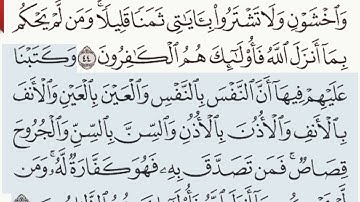 وَٱخْشَوْنِ وَلَا تَشْتَرُوا۟ بِـَٔايَـٰتِى ثَمَنًا قَلِيلًا ۚ وَمَن لَّمْ يَحْكُم
بِمَآ أَنزَلَ ٱللَّهُ فَأُو۟لَـٰٓئِكَ هُمُ ٱلْكَـٰفِرُونَ ٤٤ وَكَتَبْنَا
عَلَيْهِمْ فِيهَآ أَنَّ ٱلنَّفْسَ بِٱلنَّفْسِ وَٱلْعَيْنَ بِٱلْعَيْنِ وَٱلْأَنفَ
بِٱلْأَنفِ وَٱلْأُذُنَ بِٱلْأُذُنِ وَٱلسِّنَّ بِٱلسِّنِّ وَٱلْجُرُوحَ
قِصَاصٌ ۚ فَمَن تَصَدَّقَ بِهِۦ فَهُوَ كَفَّارَةٌ لَّهُۥ ۚ وَمَن